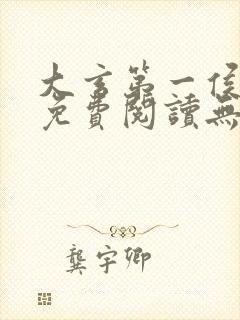 大玄第一侯
免費閱讀無
龔宇卿